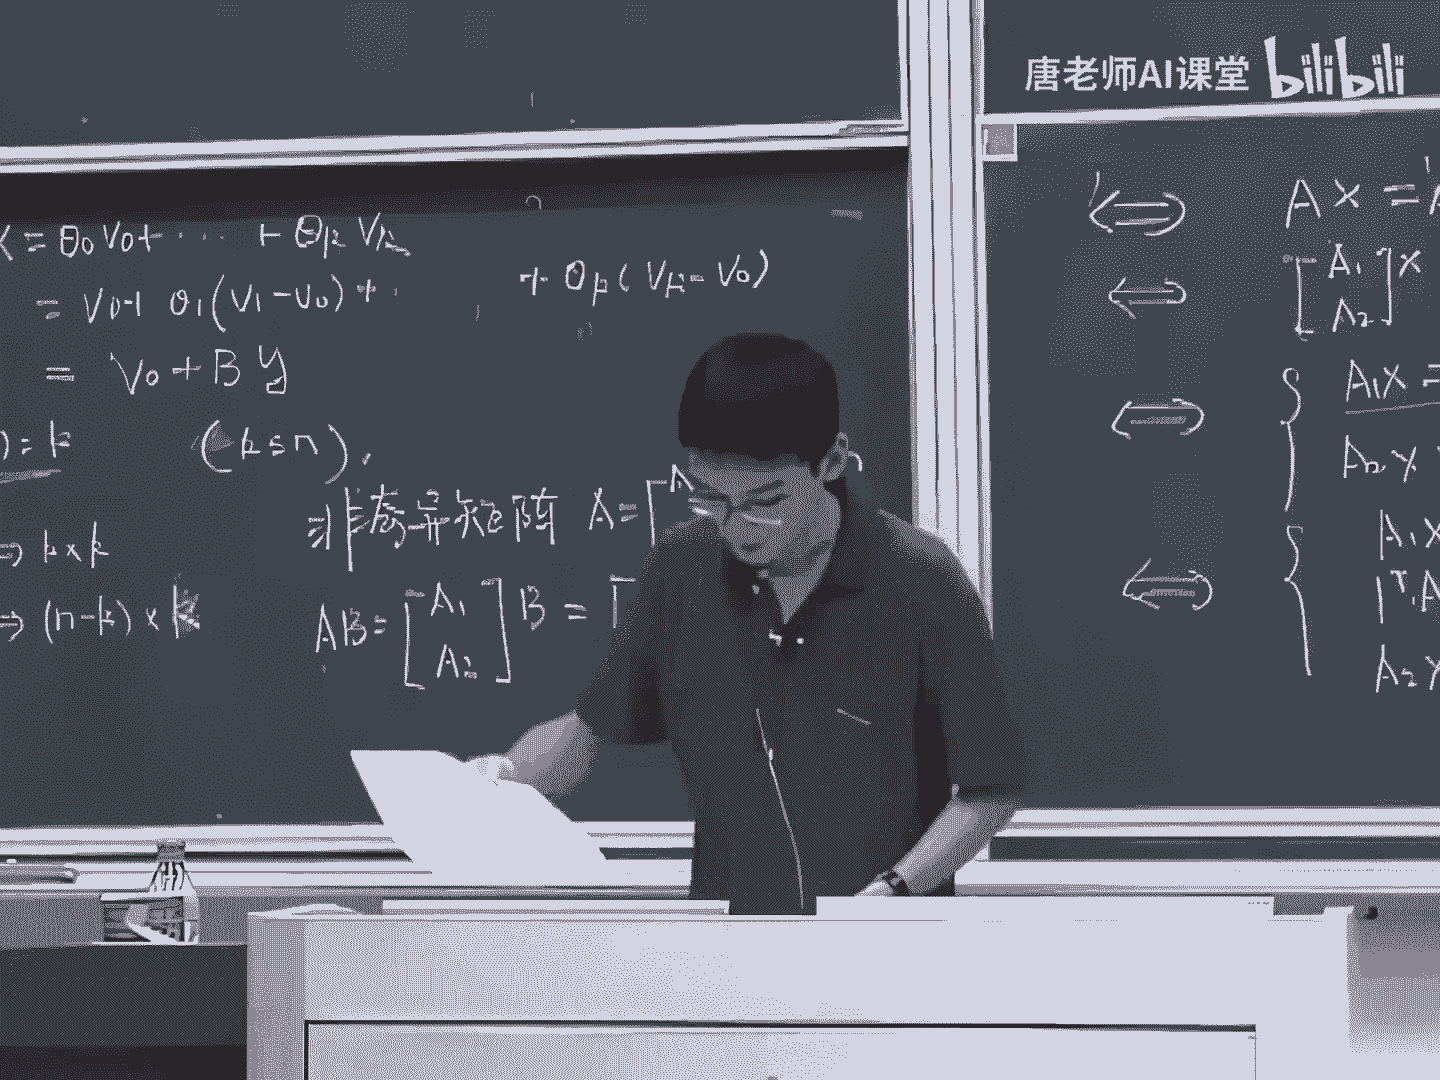 唐老师AI课堂 bilibili
x = θ₀ V₀ + ··· + θₖ Vₖ
= V₀ + θ₁(V₁ - V₀) + · + θₖ(Vₖ - V₀)
= V₀ + B y
) = k (k ≤ n).
非奇异矩阵 A = [
→ k × k
→ (n-k) × k
AB = [A₁ A₂] B = [
⟺ A x =
⟺ [A₁ A₂] x
⟺ { A₁x =
A₂
⟺ { A₁x
1ᵀ A
A₂